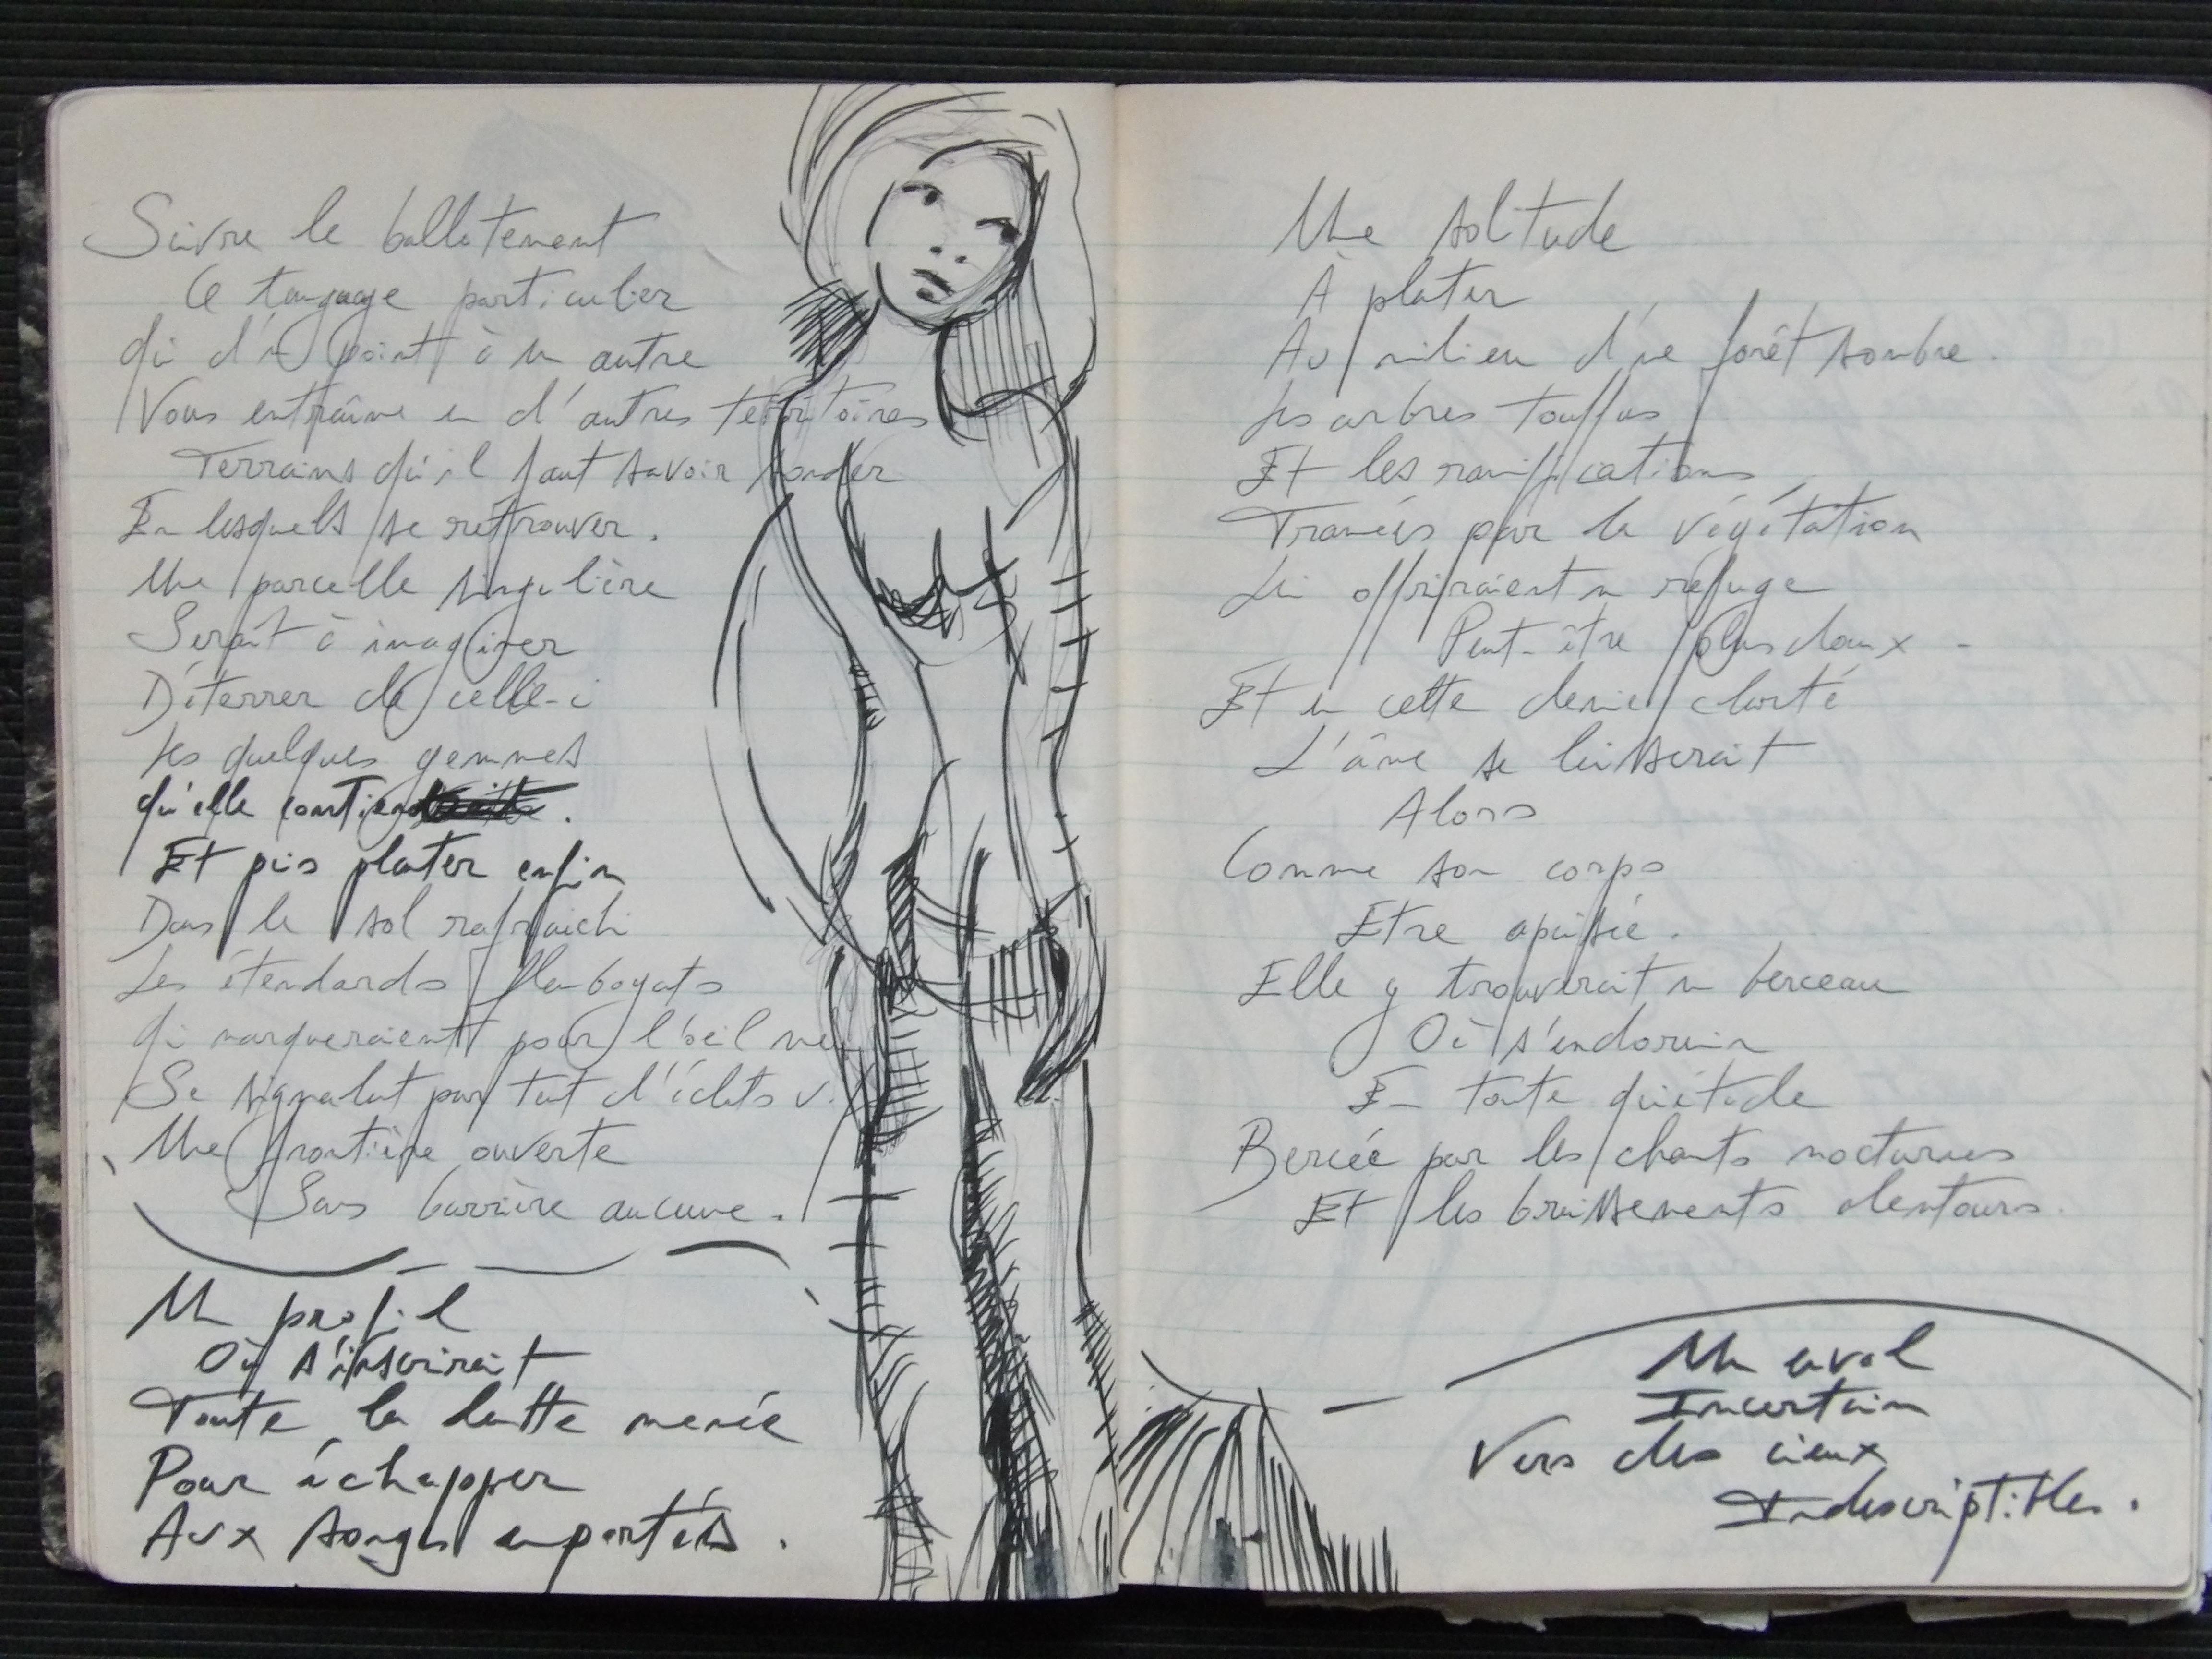 Suivre le ballotement
Ce tangage particulier
Qui d'un point à un autre
Vous entraîne en d'autres territoires
Terrains qu'il faut savoir sonder
En lesquels se retrouver.
Une parcelle singulière
Serait à imaginer
Déterrer de celle-ci
Les quelques gemmes
Qu'elle contient.
Et puis planter enfin
Dans le sol rafraichi
Les étendards flamboyants
Qui marqueraient pour l'œil
Se signalant par tant d'éclats
Une frontière ouverte
Sans barrière aucune.
Un profil
Où s'inscrirait
Toute la lutte menée
Pour échapper
Aux songes emportés.
Une solitude
À planter
Au milieu d'une forêt sombre.
Les arbres touffus
Et les ramifications
Tramées par la végétation
Lui offriraient un refuge
Peut-être plus doux -
Et en cette demie clarté
L'âme se laisserait
Alors
Comme son corps
Etre apaisée.
Elle y trouverait un berceau
Où s'endormir
En toute quiétude
Bercée par les chants nocturnes
Et les bruissements alentours.
Un envol
Incertain
Vers des cieux
Indescriptibles.